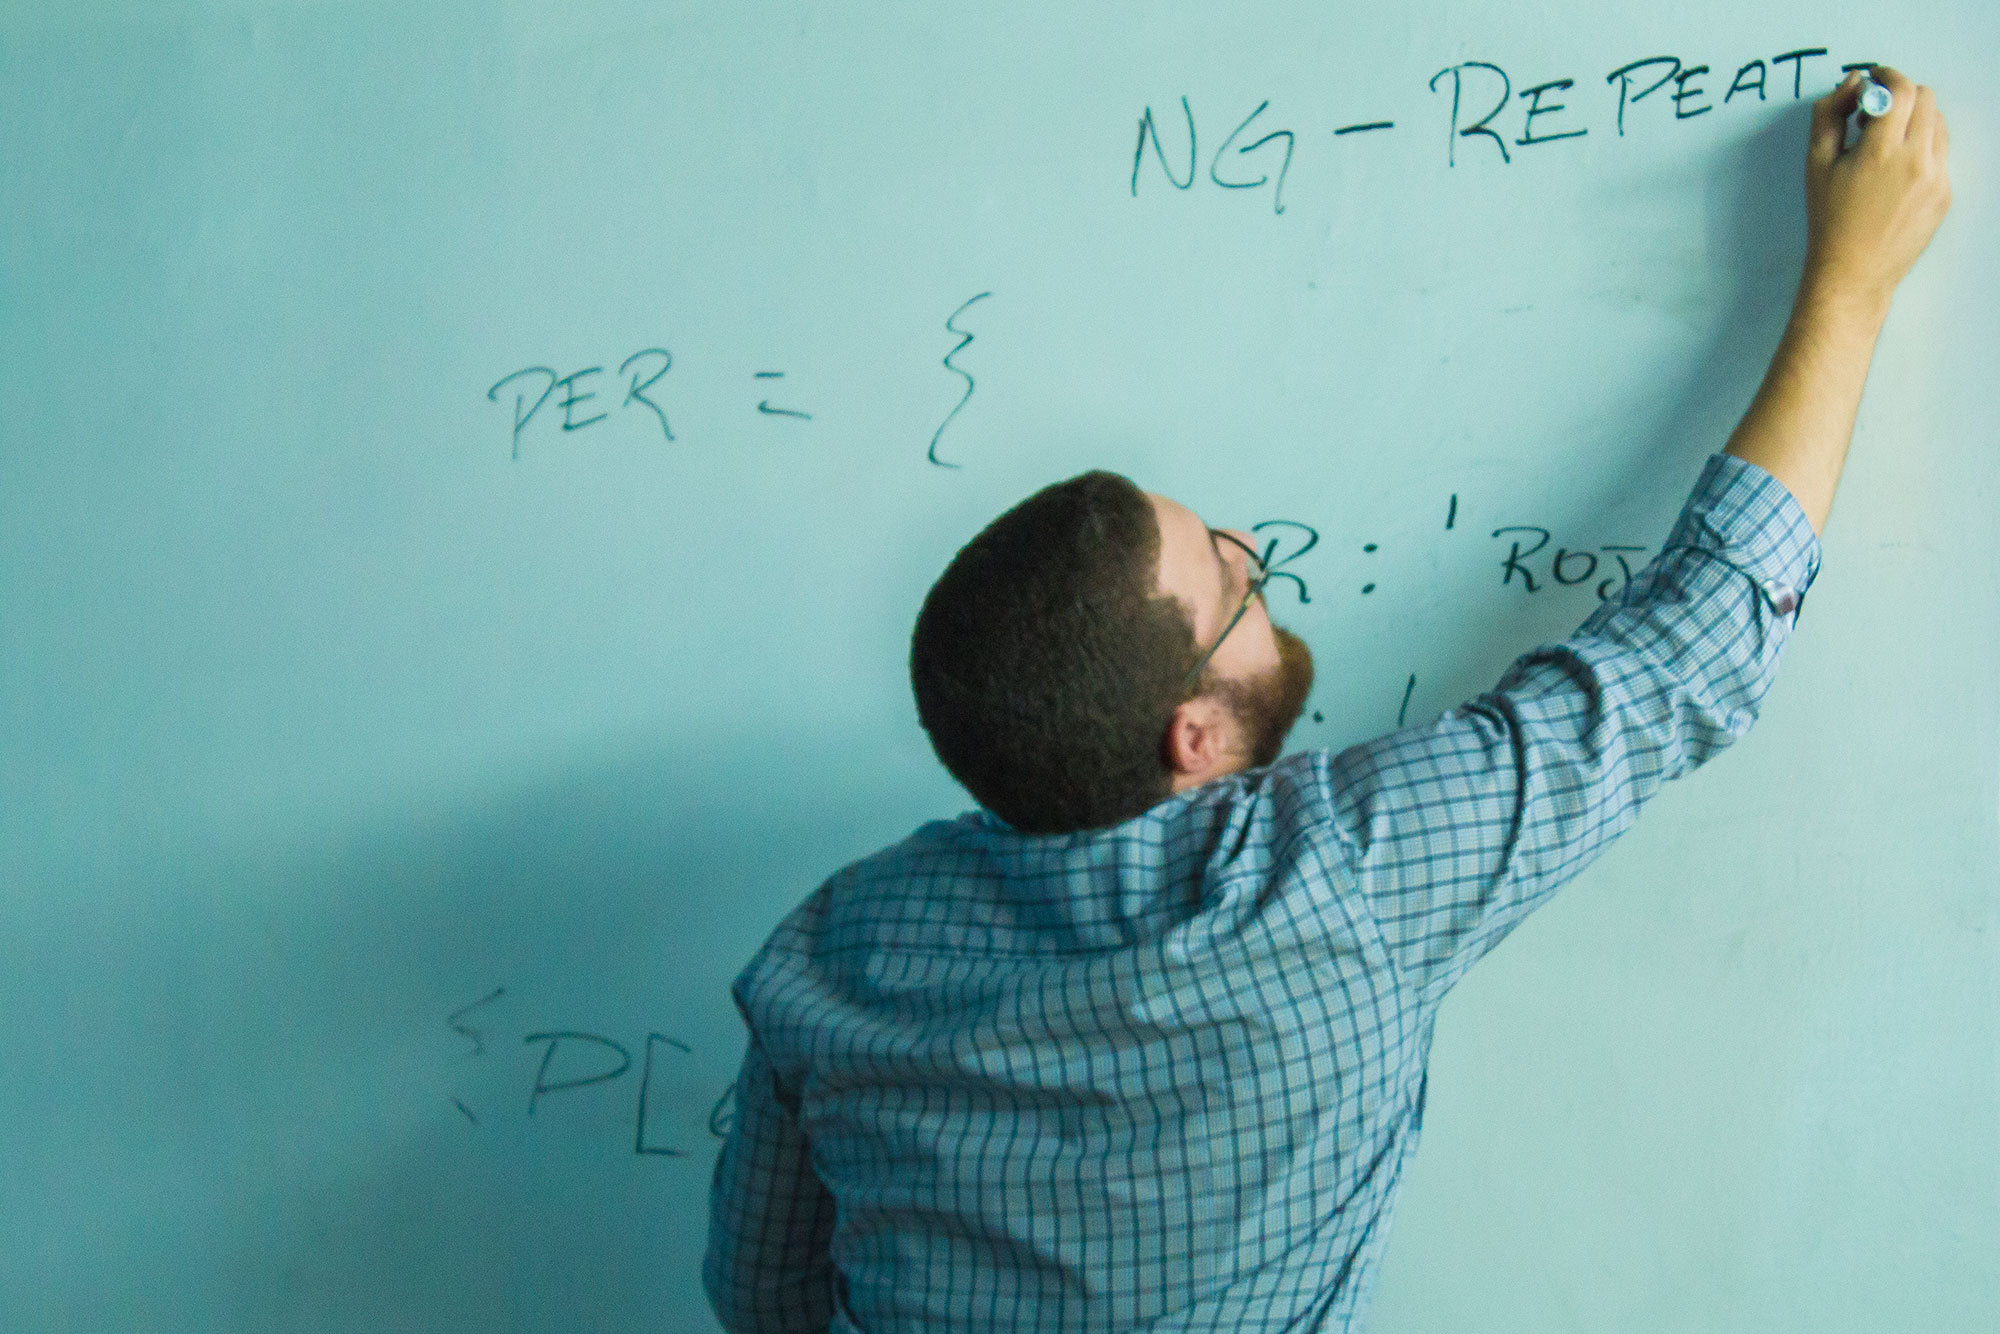 NG-REPEAT=
PER = {
R: 'ROJ
: '
{P[